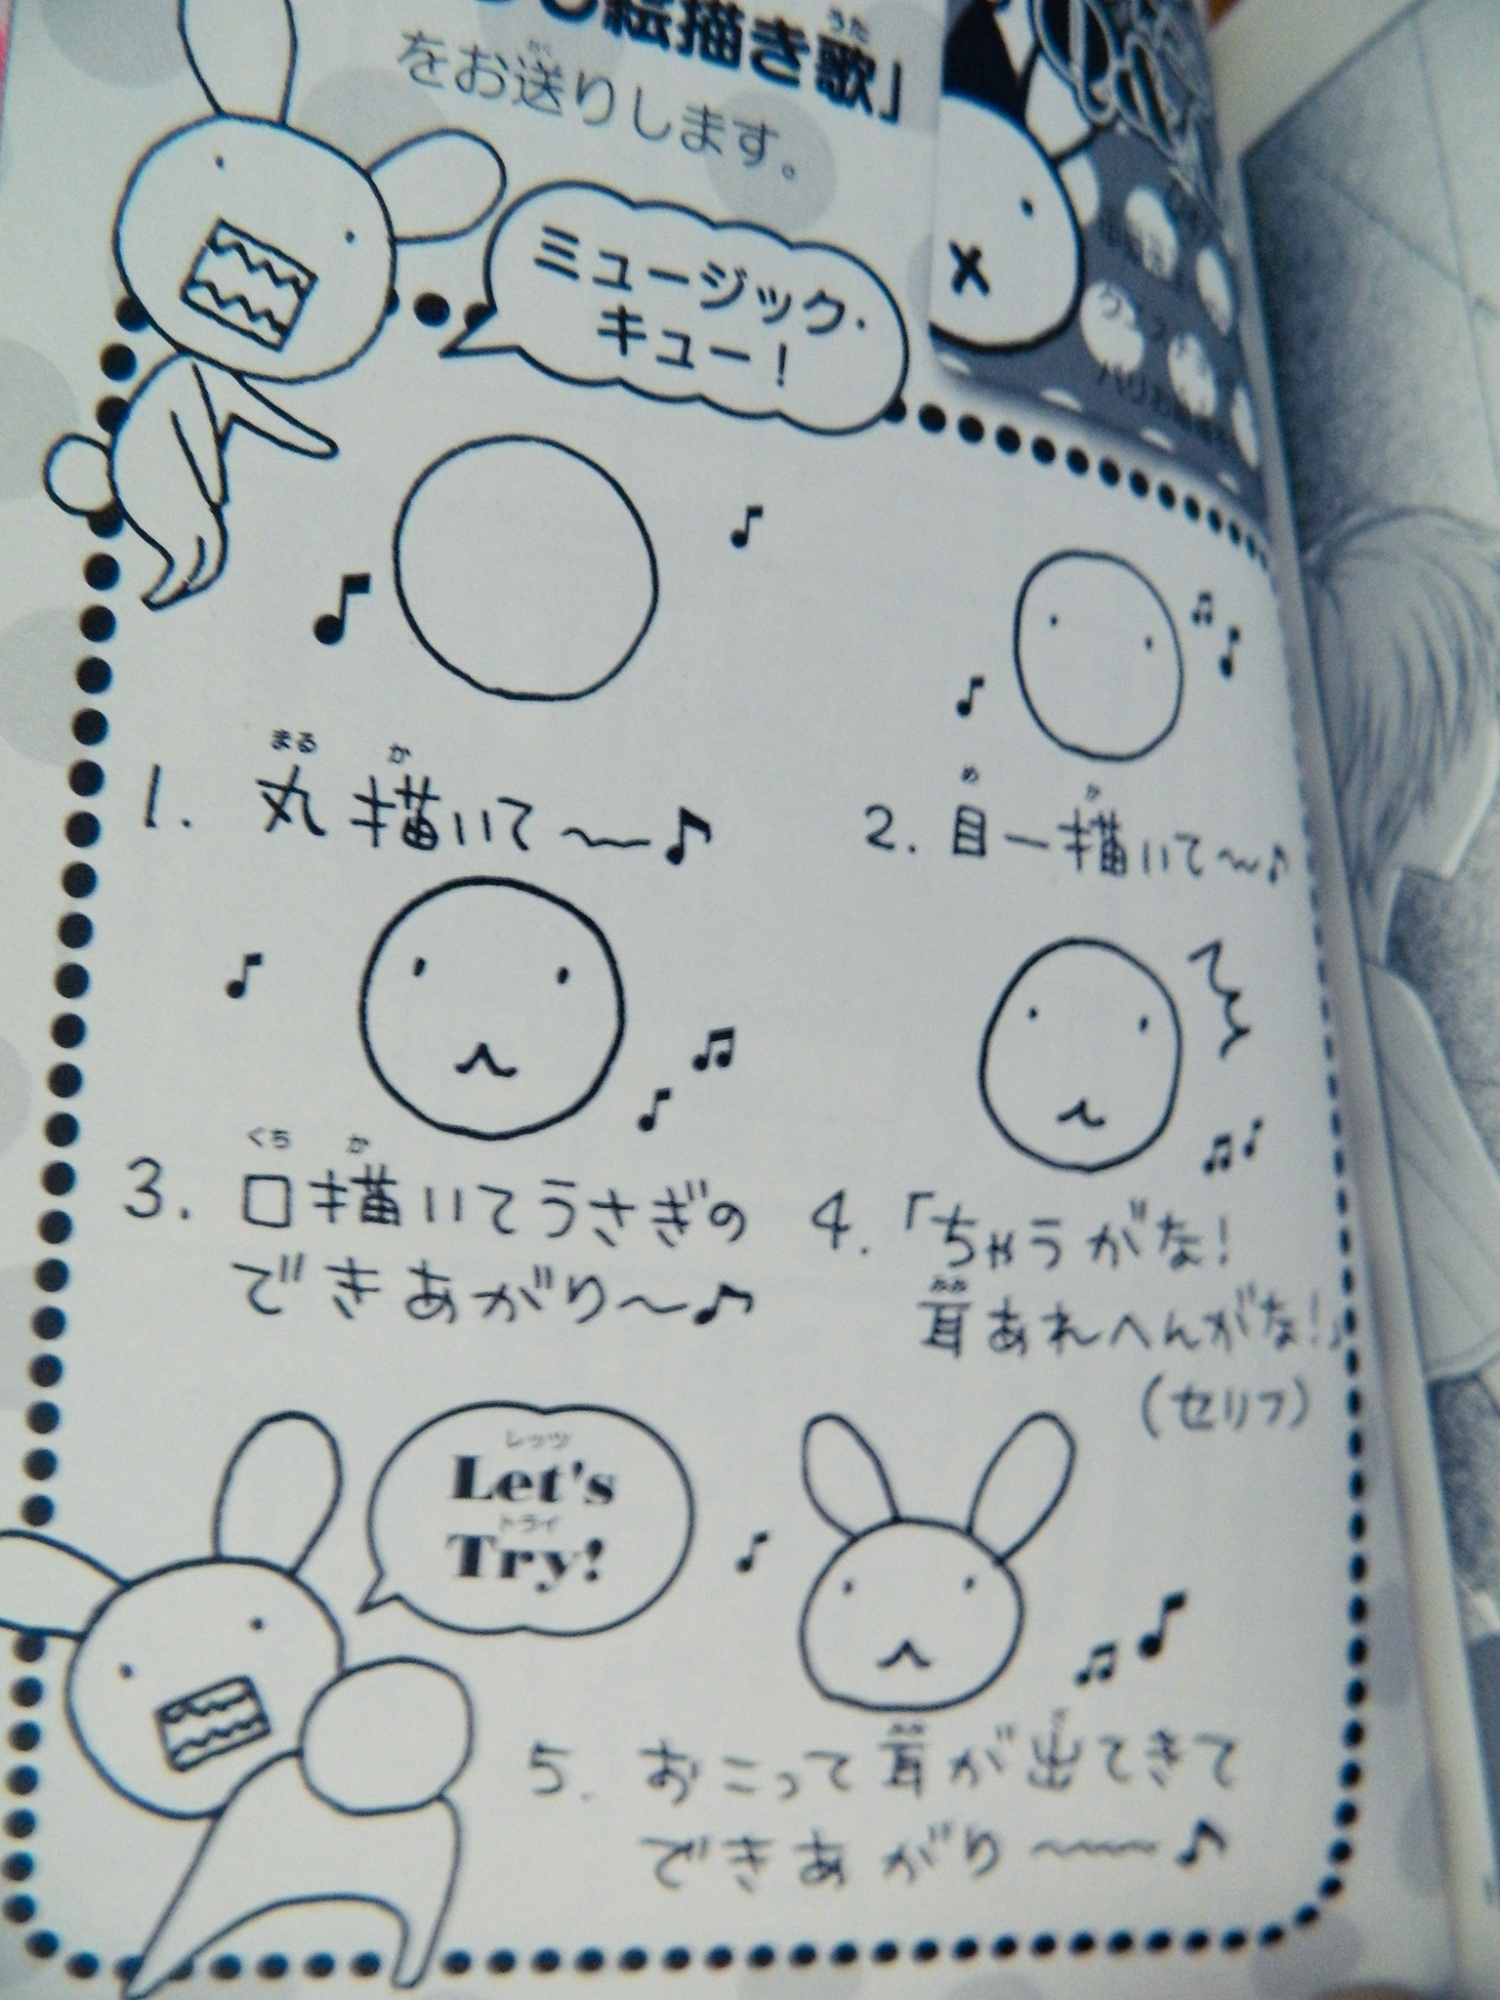 絵描き歌」
をお送りします。
ミュージック・
キュー！
1. 丸描いて〜♪
2. 目ー描いて〜♪
3. 口描いてうさぎの
できあがり〜♪
4.「ちゃうがな!
耳あれへんがな!」
(セリフ)
Let's
Try!
5. おこって耳が出てきて
できあがり〜〜♪